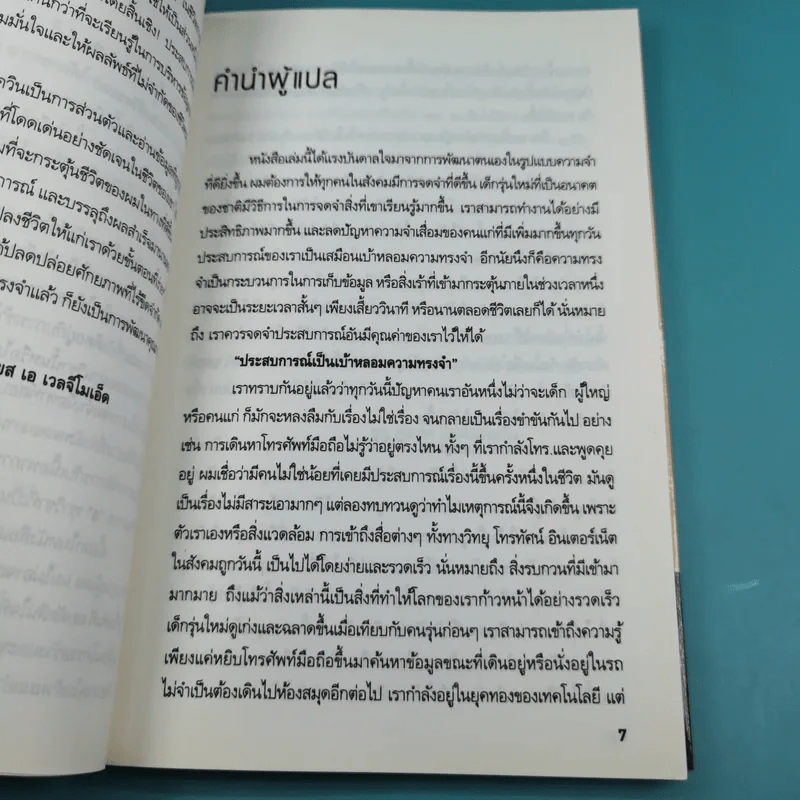 ให้เป็นส่วน
กว่าที่จะเรียนรู้ในการบริหาร
โดยสิ้นเชิง! ประสบ
มมั่นใจและให้ผลลัพธ์ที่ไม่จำกัดของชีวิต
ควินเป็นการส่วนตัวและอ่านข้อมูล
ที่โดดเด่นอย่างชัดเจนในชีวิตของ
มที่จะกระตุ้นชีวิตของผมในทาง
การณ์ และบรรลุถึงผลสำเร็จ
ปลงชีวิตให้แก่เราด้วยขั้นตอน
ด้ปลดปล่อยศักยภาพที่ไร้ขีดจำ
รงจำแล้ว ก็ยังเป็นการพัฒนา
มส เอ เวลจีโมเอ็ด
คำนำผู้แปล
หนังสือเล่มนี้ได้แรงบันดาลใจมาจากการพัฒนาตนเองในรูปแบบความจำ
ที่ดียิ่งขึ้น ผมต้องการให้ทุกคนในสังคมมีการจดจำที่ดีขึ้น เด็กรุ่นใหม่ที่เป็นอนาคต
ของชาติมีวิธีการในการจดจำสิ่งที่เขาเรียนรู้มากขึ้น เราสามารถทำงานได้อย่างมี
ประสิทธิภาพมากขึ้น และลดปัญหาความจำเสื่อมของคนแก่ที่มีเพิ่มมากขึ้นทุกวัน
ประสบการณ์ของเราเป็นเสมือนเบ้าหลอมความทรงจำ อีกนัยนึงก็คือความทรง
จำเป็นกระบวนการในการเก็บข้อมูล หรือสิ่งเร้าที่เข้ามากระตุ้นภายในช่วงเวลาหนึ่ง
อาจจะเป็นระยะเวลาสั้นๆ เพียงเสี้ยววินาที หรือนานตลอดชีวิตเลยก็ได้ นั่นหมาย
ถึง เราควรจดจำประสบการณ์อันมีคุณค่าของเราไว้ให้ได้
“ประสบการณ์เป็นเบ้าหลอมความทรงจำ”
เราทราบกันอยู่แล้วว่าทุกวันนี้ปัญหาคนเราอันหนึ่งไม่ว่าจะเด็ก ผู้ใหญ่
หรือคนแก่ ก็มักจะหลงลืมกับเรื่องไม่ใช่เรื่อง จนกลายเป็นเรื่องขำขันกันไป อย่าง
เช่น การเดินหาโทรศัพท์มือถือไม่รู้ว่าอยู่ตรงไหน ทั้งๆ ที่เรากำลังโทร.และพูดคุย
อยู่ ผมเชื่อว่ามีคนไม่ใช่น้อยที่เคยมีประสบการณ์เรื่องนี้ขึ้นครั้งหนึ่งในชีวิต มันดู
เป็นเรื่องไม่มีสาระเอามากๆ แต่ลองทบทวนดูว่าทำไมเหตุการณ์นี้จึงเกิดขึ้น เพราะ
ตัวเราเองหรือสิ่งแวดล้อม การเข้าถึงสื่อต่างๆ ทั้งทางวิทยุ โทรทัศน์ อินเตอร์เน็ต
ในสังคมถูกวันนี้ เป็นไปได้โดยง่ายและรวดเร็ว นั่นหมายถึง สิ่งรบกวนที่มีเข้ามา
มากมาย ถึงแม้ว่าสิ่งเหล่านี้เป็นสิ่งที่ทำให้โลกของเราก้าวหน้าได้อย่างรวดเร็ว
เด็กรุ่นใหม่ดูเก่งและฉลาดขึ้นเมื่อเทียบกับคนรุ่นก่อนๆ เราสามารถเข้าถึงความรู้
เพียงแค่หยิบโทรศัพท์มือถือขึ้นมาค้นหาข้อมูลขณะที่เดินอยู่หรือนั่งอยู่ในรถ
ไม่จำเป็นต้องเดินไปห้องสมุดอีกต่อไป เรากำลังอยู่ในยุคทองของเทคโนโลยี แต่
7